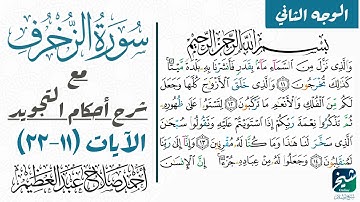 الوجه الثاني
سورة الزخرف
مع
شرح أحكام التجويد
الآيات (١١-٢٣)
أحمد صلاح عبد العظيم
بسم الله الرحمن الرحيم
وَالَّذِى نَزَّلَ مِنَ السَّمَاءِ مَاءً بِقَدَرٍ فَأَنشَرْنَا بِهِ بَلْدَةً مَّيْتًا
كَذَٰلِكَ تُخْرَجُونَ ١١ وَالَّذِى خَلَقَ الْأَزْوَاجَ كُلَّهَا وَجَعَلَ
لَكُم مِّنَ الْفُلْكِ وَالْأَنْعَامِ مَا تَرْكَبُونَ ١٢ لِتَسْتَوُوا عَلَىٰ ظُهُورِهِ
ثُمَّ تَذْكُرُوا نِعْمَةَ رَبِّكُمْ إِذَا اسْتَوَيْتُمْ عَلَيْهِ وَتَقُولُوا سُبْحَٰنَ
الَّذِى سَخَّرَ لَنَا هَٰذَا وَمَا كُنَّا لَهُ مُقْرِنِينَ ١٣
وَجَعَلُوا لَهُ مِنْ عِبَادِهِ جُزْءًا إِنَّ الْإِنسَٰنَ
شيخ